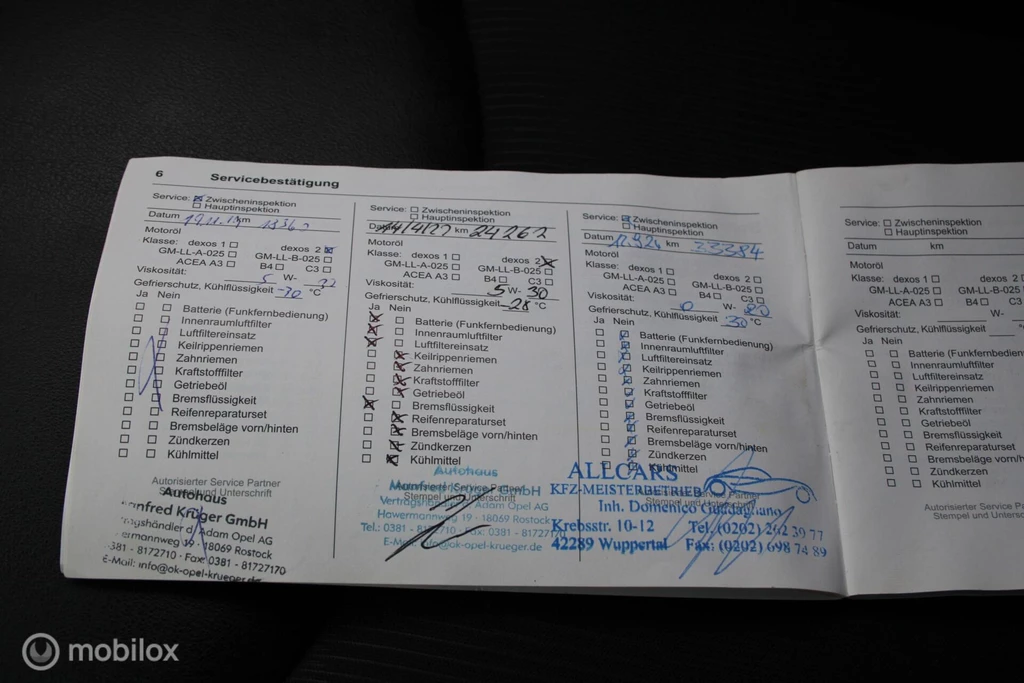 6 Servicebestätigung
Service: Zwischeninspektion
Hauptinspektion
Datum km
Motoröl
Klasse: dexos 1 dexos 2
GM-LL-A-025 GM-LL-B-025
ACEA A3 B4 C3
Viskosität: 5 W-
Gefrierschutz, Kühlflüssigkeit -30 °C
Ja Nein
Batterie (Funkfernbedienung)
Innenraumluftfilter
Luftfiltereinsatz
Keilrippenriemen
Zahnriemen
Kraftstofffilter
Getriebeöl
Bremsflüssigkeit
Reifenreparaturset
Bremsbeläge vorn/hinten
Zündkerzen
Kühlmittel
Autorisierter Service Partner
Stempel und Unterschrift
Autohaus
anfred Krüger GmbH
Adam Opel AG
18069 Rostock
381 - 8172710 · Fax 0381 - 81727170
E-Mail: info@ok-opel-krueger.de
Service: Zwischeninspektion
Hauptinspektion
Datum km 24262
Motoröl
Klasse: dexos 1 dexos 2
GM-LL-A-025 GM-LL-B-025
ACEA A3 B4 C3
Viskosität: 5 W- 30
Gefrierschutz, Kühlflüssigkeit -28 °C
Ja Nein
Batterie (Funkfernbedienung)
Innenraumluftfilter
Luftfiltereinsatz
Keilrippenriemen
Zahnriemen
Kraftstofffilter
Getriebeöl
Bremsflüssigkeit
Reifenreparaturset
Bremsbeläge vorn/hinten
Zündkerzen
Kühlmittel
Autohaus
Autorisierter Service Partner
Stempel und Unterschrift
GmbH
Adam Opel AG
Hawermannweg 19 - 18069 Rostock
Tel.: 0381 -
E-Mail: info@ok-opel-krueger.de
Service: Zwischeninspektion
Hauptinspektion
Datum km 33384
Motoröl
Klasse: dexos 1 dexos 2
GM-LL-A-025 GM-LL-B-025
ACEA A3 B4 C3
Viskosität: 0 W-
Gefrierschutz, Kühlflüssigkeit 30 °C
Ja Nein
Batterie (Funkfernbedienung)
Innenraumluftfilter
Luftfiltereinsatz
Keilrippenriemen
Zahnriemen
Kraftstofffilter
Getriebeöl
Bremsflüssigkeit
Reifenreparaturset
Bremsbeläge vorn/hinten
Zündkerzen
Kühlmittel
ALLCARS
KFZ-MEISTERBETRIEB
Inh. Domenico Guadagnano
Krebsstr. 10-12 Tel. (0202) 242 39 77
42289 Wuppertal Fax: (0202) 698 74 89
Service: Zwischeninspektion
Hauptinspektion
Datum km
Motoröl
Klasse: dexos 1 dexos
GM-LL-A-025 GM-LL-B-025
ACEA A3 B4 C3
Viskosität: W-
Gefrierschutz, Kühlflüssigkeit
Ja Nein
Batterie (Funkfernbedienun
Innenraumluftfilter
Luftfiltereinsatz
Keilrippenriemen
Zahnriemen
Kraftstofffilter
Getriebeöl
Bremsflüssigkeit
Reifenreparaturset
Bremsbeläge vorn/hinten
Zündkerzen
Kühlmittel
Autorisierter Service Partn
Stempel und Unterschri
mobilox